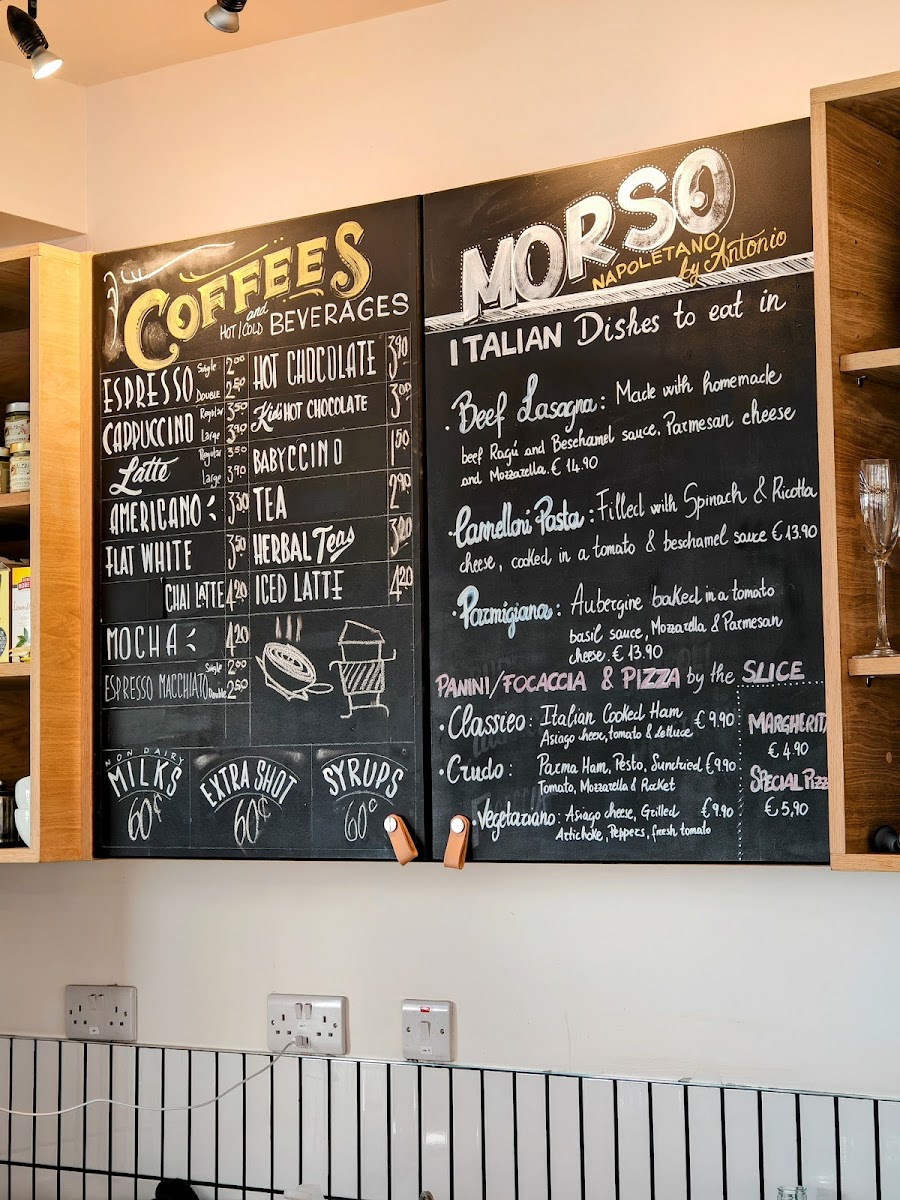 COFFEES
and
HOT/COLD BEVERAGES
ESPRESSO Single 2.00
Double 2.50
CAPPUCCINO Regular 3.50
Large 3.90
Latte Regular 3.50
Large 3.90
AMERICANO 3.30
FLAT WHITE 3.50
CHAI LATTE 4.20
MOCHA 4.20
ESPRESSO MACCHIATO Single 2.00
Double 2.50
HOT CHOCOLATE 3.90
Kid's HOT CHOCOLATE 3.00
BABYCCINO 1.50
TEA 2.90
HERBAL Teas 3.20
ICED LATTE 4.20
NON DAIRY
MILKS
60c
EXTRA SHOT
60c
SYRUPS
60c
MORSO
NAPOLETANO
by Antonio
ITALIAN Dishes to eat in
· Beef Lasagna: Made with homemade
beef Ragú and Beschamel sauce, Parmesan cheese
and Mozzarella. € 14.90
· Cannelloni Pasta: Filled with Spinach & Ricotta
cheese, cooked in a tomato & beschamel sauce € 13.90
· Parmigiana: Aubergine baked in a tomato
basil sauce, Mozzarella & Parmesan
cheese. € 13.90
PANINI/FOCACCIA & PIZZA by the SLICE
· Classico: Italian Cooked Ham € 9.90
Asiago cheese, tomato & lettuce
· Crudo: Parma Ham, Pesto, Sundried € 9.90
Tomato, Mozzarella & Rocket
· Vegetariano: Asiago cheese, Grilled € 9.90
Artichoke, Peppers, fresh tomato
MARGHERITA
€ 4.90
SPECIAL Pizz
€ 5,90